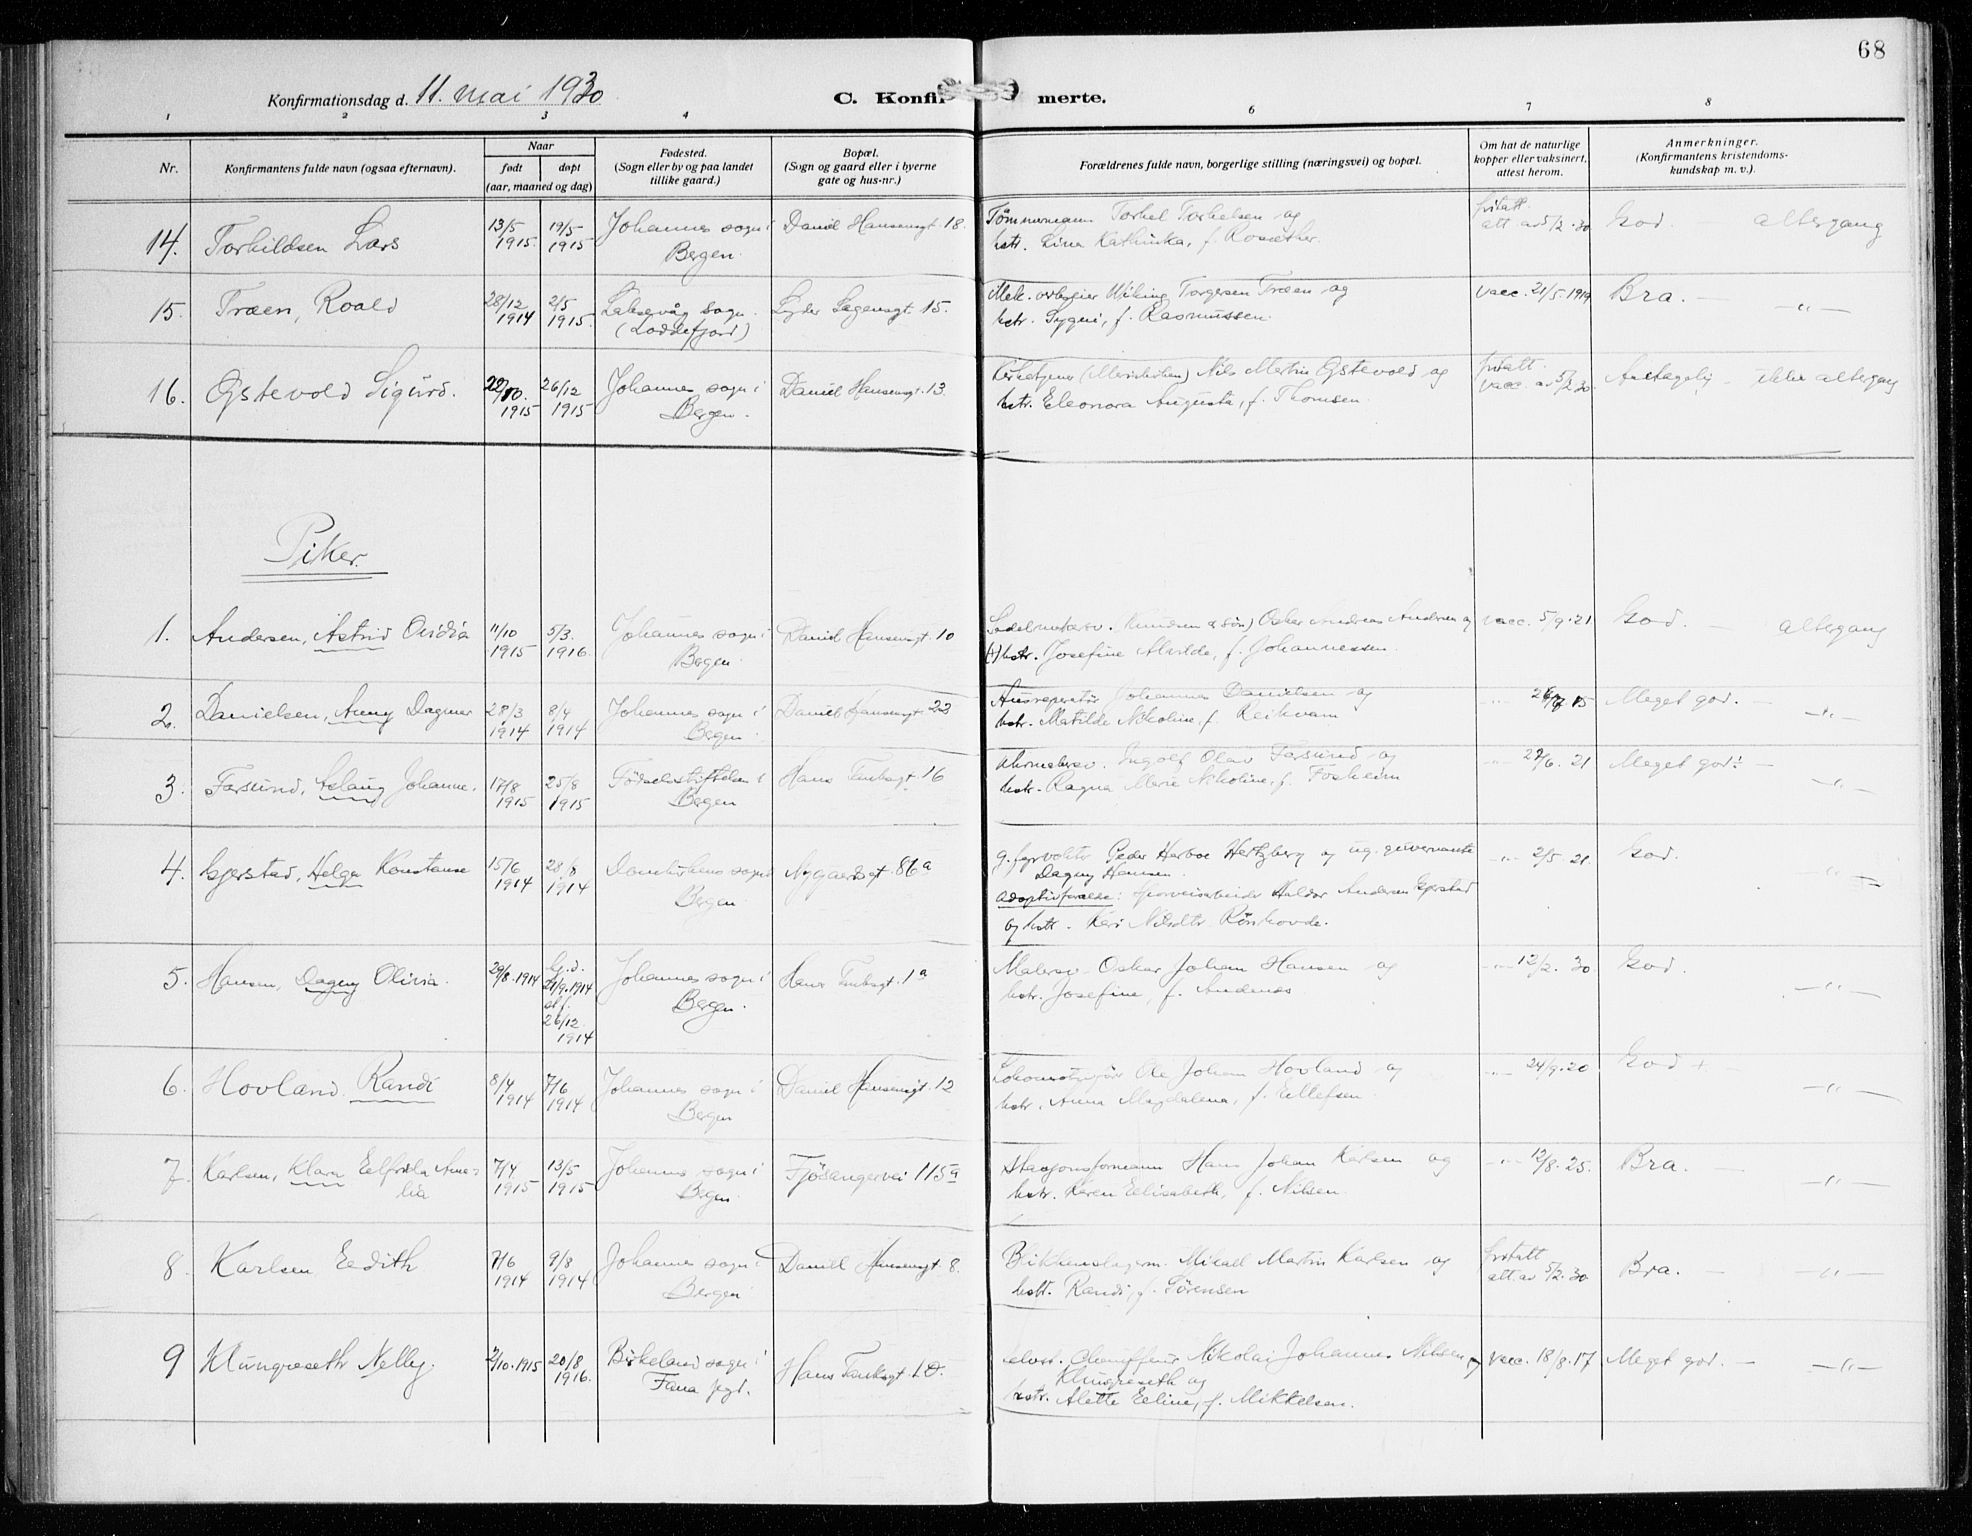 68
Konfirmationsdag d. 11. mai 1930
C. Konfir merte.
1 2 3 4 6 7 8
Nr.
Konfirmantens fulde navn (ogsaa efternavn).
Naar
født
døpt
(aar, maaned og dag)
Fødested.
(Sogn eller by og paa landet
tillike gaard.)
Bopæl.
(Sogn og gaard eller i byerne
gate og hus-nr.)
Forældrenes fulde navn, borgerlige stilling (næringsvei) og bopæl.
Om hat de naturlige
kopper eller vaksinert,
attest herom.
Anmerkninger.
(Konfirmantens kristendoms-
kundskap m. v.).
14. Torkildsen Lars
13/5 1915
19/5 1915
Johannes sogn i
Bergen.
Daniel Hansensgt 18.
Tømmermann Torkel Torkelsen og
hstr. Lina Kathinka, f. Rosæther.
fritatt
att av 5/2.30
God. altergang
15. Træen, Roald
28/12 1914
2/5 1915.
Laksevåg sogn.
(Loddefjord)
Lyder Sagensgt 15.
Mek. Wiking Torgersen Træen og
hstr. Sygni, f. Rasmussen.
Vacc. 21/5.1919
Bra. — " —
16. Østevold Sigurd.
22/10. 1915
26/12 1915
Johannes sogn i
Bergen.
Daniel Hansensgt. 13.
Kirketjener Nils Martin Østevold og
hstr. Eleonora Augusta, f. Thomsen.
fritatt.
vacc. av 5/2.30
Antagelig — ikke altergang
Piker.
1. Andersen, Astrid Ovidia
11/10 1915
5/3. 1916.
Johannes sogn i
Bergen.
Daniel Hansensgt 10
(Knudsen & søn) Oskar Andreas Andersen og
(+) hstr. Josefine Alvilde, f. Johannessen.
vacc. 5/9.21
God. altergang
2. Danielsen, Anny Dagmar
28/3 1914
8/4 1914
Johannes sogn i
Bergen.
Daniel Hansensgt 22
Johannes Danielsen og
hstr. Matilde Nikoline, f. Reikvam
15
Meget god. — " —
3. Farsund, Aslaug Johanne.
17/8 1915
25/8 1915
Fødselsstiftelsen i
Bergen
Hans Tanksgt 16
Ingolf Olav Farsund og
hstr. Ragna Marie Nikoline, f. Fosheim
— " — 27/6. 21
Meget god: — " —
4. Gjerstad, Helga Konstanse
15/6 1914
28/8 1914
Domkirkens sogn i
Bergen.
Nygaardsgt. 86a
g. fyrvoktr Peder Harboe Hertzberg og ug. guvernante
Dagny Hansen.
adoptivforeldre: Sporveisarbeider Haldor Andersen Gjerstad
og hstr. Kari Nilsdtr. Rönhovde.
— " — 2/5. 21
God. — " —
5. Hansen, Dagny Olivia.
29/8.1914
hj. d.
21/9.1914
st. f.
26/12 1914
Johannes sogn i
Bergen.
Hans Tanksgt. 1a
Malersv. Oskar Johan Hansen og
hstr. Josefine, f. Andenæs
— " — 12/2. 30.
God. — " —
6. Hovland Randi
8/4 1914
7/6 1914
Johannes sogn i
Bergen
Daniel Hansensgt. 12
Ole Johan Hovland og
hstr. Anna Magdalena, f. Ellefsen.
— " — 24/9.20
God + — " —
7. Karlsen, Klara Elfrida Ama=
lia
7/4 1915
13/5 1915
Johannes sogn i
Bergen.
Fjösangervei 115a
Stasjonsformann Hans Johan Karlsen og
hstr. Karen Elisabeth, f. Nilsen.
— " — 12/8. 25.
Bra. — " —
8. Karlsen Edith
7/6 1914
9/8 1914
Johannes sogn i
Bergen
Daniel Hansensgt 8.
Blikkenslagerm. Mikael Martin Karlsen og
hstr. Randi, f. Sørensen
fritatt
att. av 5/2.30
Bra. — " —
9 Klungreseth Nelly.
2/10.1915
20/8 1916.
Birkeland sogn i
Fana pgd.
Hans Tanksgt 10.
Chauffeur Nikolai Johannes Nilsen
Klungreseth og
hstr. Alette Eline, f. Mikkelsen.
Vacc. 18/8.17
Meget god. — " —